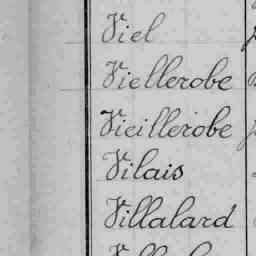 Viel
Viellerobe
Vieillerobe
Vilais
Villalard